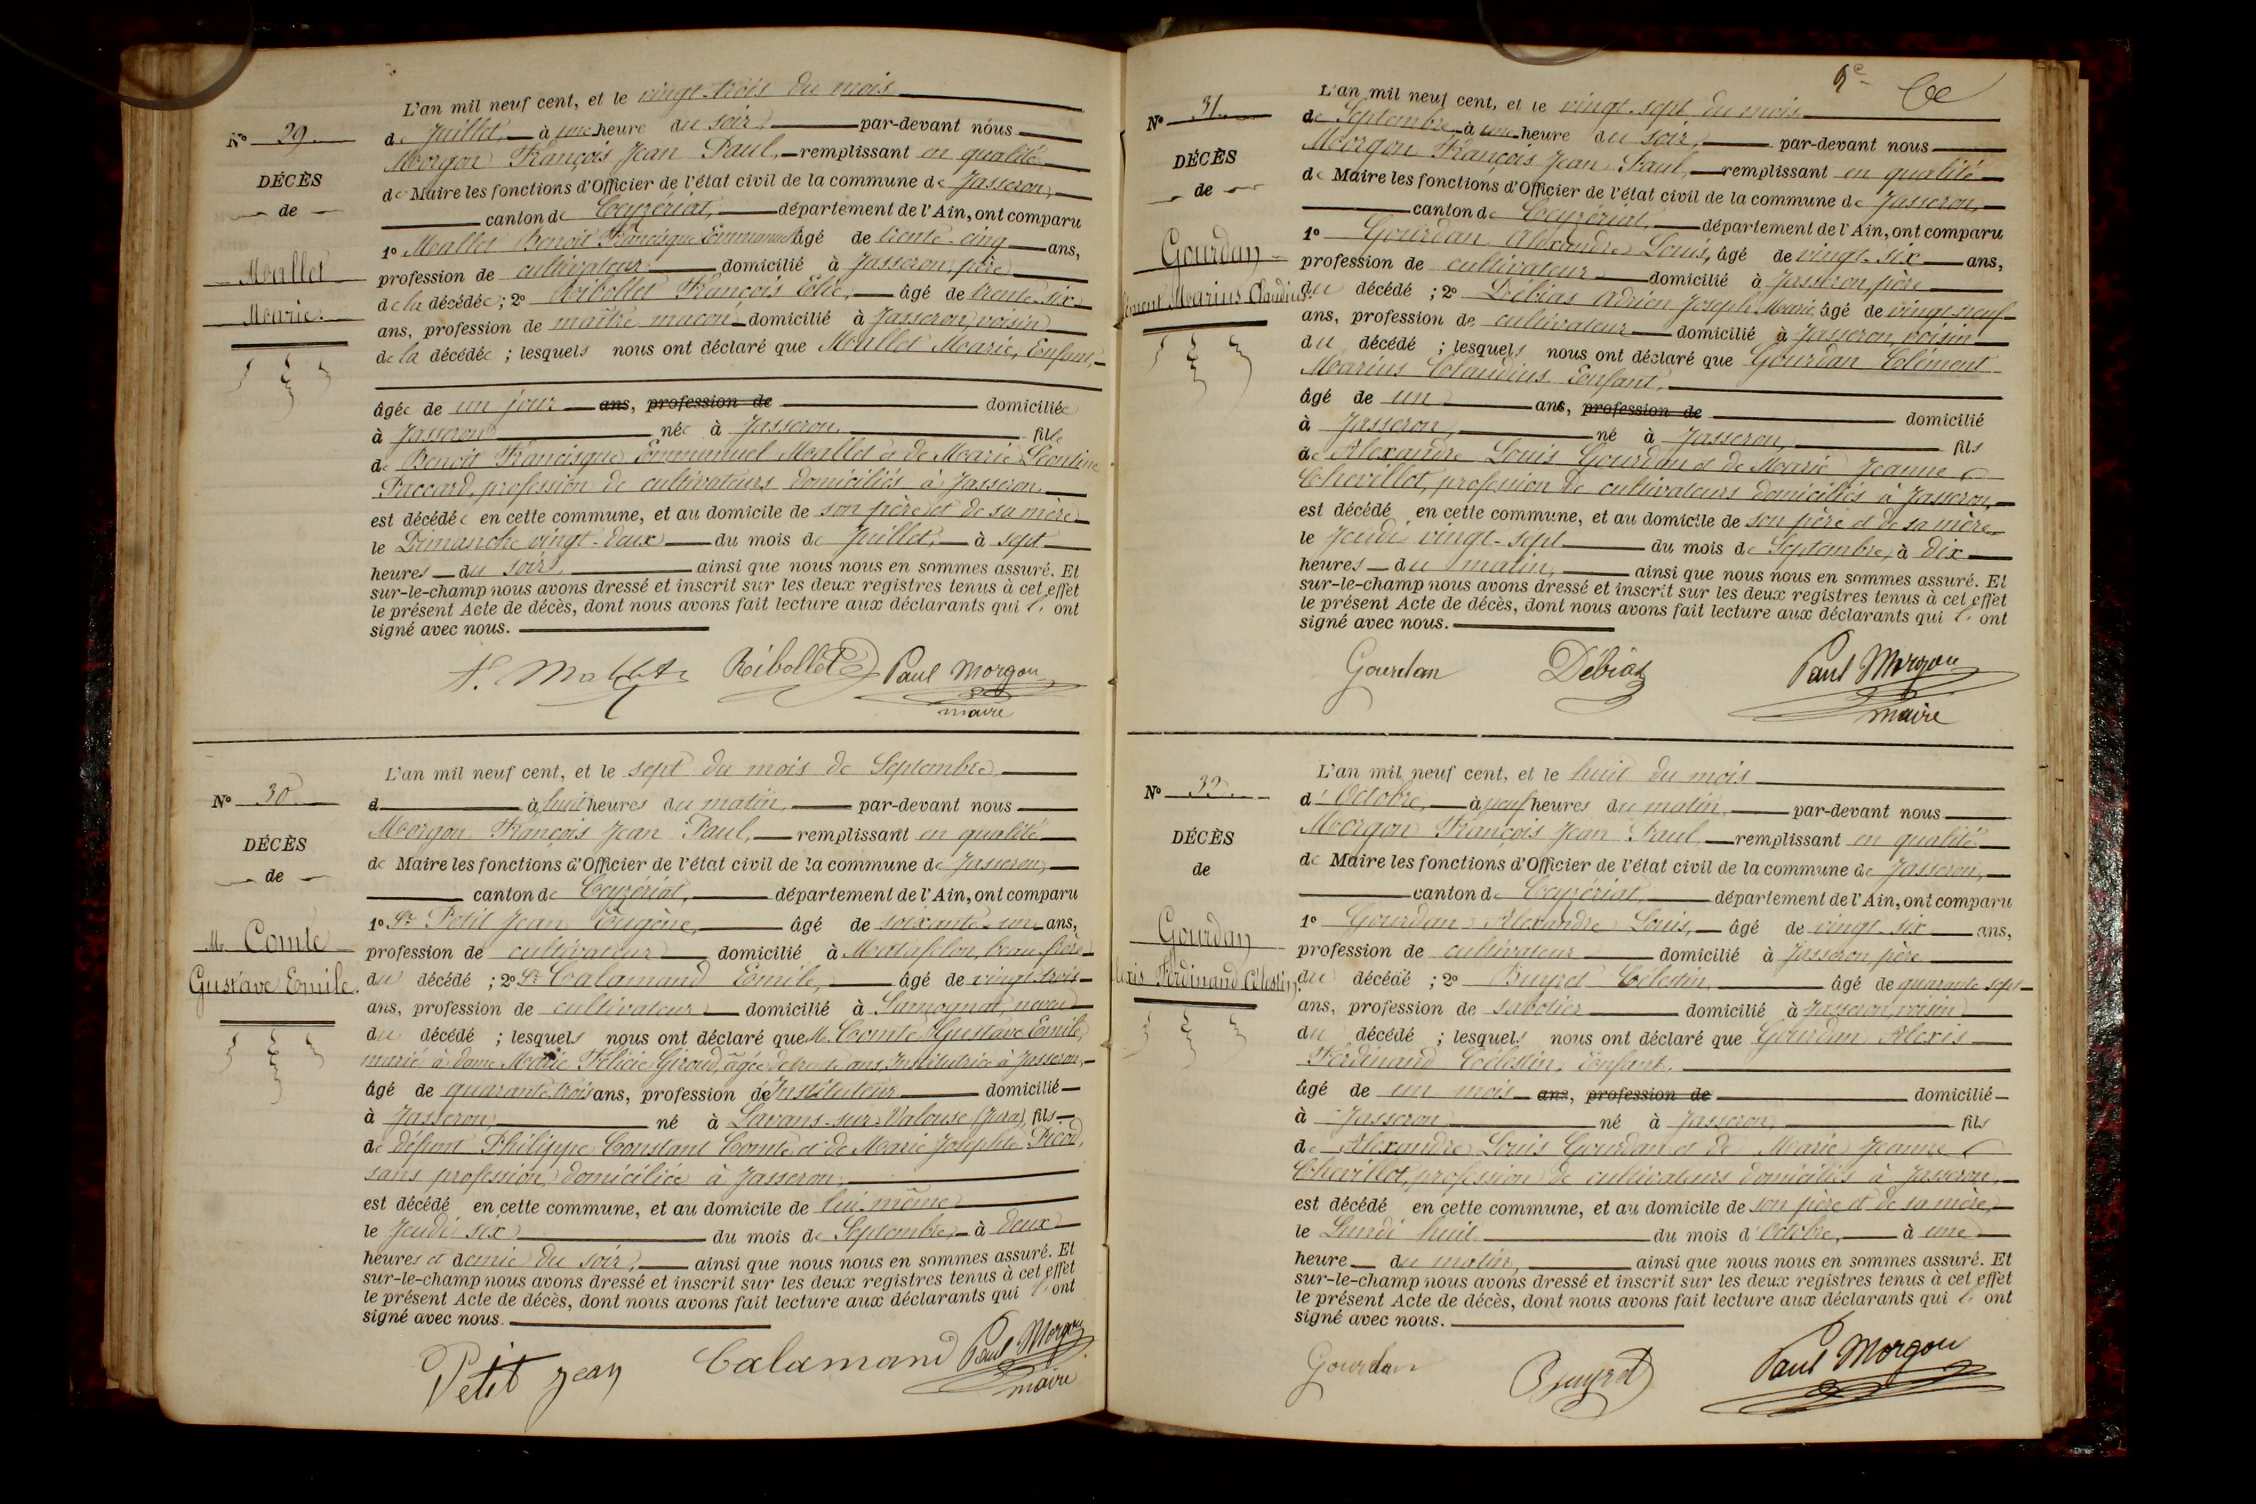 N° 29.
DÉCÈS
de
Mallet
Marie.
L'an mil neuf cent, et le vingt-trois du mois
de Juillet, à une heure du soir, par-devant nous
Morgon François Jean Paul, remplissant en qualité
de Maire les fonctions d'Officier de l'état civil de la commune de Jasseron,
canton de Ceyzériat, département de l'Ain, ont comparu
1° Mallet Benoit Francisque Emmanuel âgé de trente-cinq ans,
profession de cultivateur domicilié à Jasseron, père
de la décédée ; 2° Ribollet François Elie, âgé de trente-six
ans, profession de maître maçon domicilié à Jasseron, voisin
de la décédée ; lesquels nous ont déclaré que Mallet Marie, Enfant,
âgée de un jour ans, profession de domiciliée
à Jasseron née à Jasseron, fille
de Benoit Francisque Emmanuel Mallet et de Marie Léontine
Paccard, profession de cultivateurs domiciliés à Jasseron
est décédée en cette commune, et au domicile de son père et de sa mère
le Dimanche vingt-deux du mois de Juillet, à sept
heures du soir, ainsi que nous nous en sommes assuré. Et
sur-le-champ nous avons dressé et inscrit sur les deux registres tenus à cet effet
le présent Acte de décès, dont nous avons fait lecture aux déclarants qui l' ont
signé avec nous.
Ribollet Paul Morgon
maire
N° 30.
DÉCÈS
de
M. Comte
Gustave Emile.
L'an mil neuf cent, et le sept du mois de Septembre
d à huit heures du matin, par-devant nous
Morgon François Jean Paul, remplissant en qualité
de Maire les fonctions d'Officier de l'état civil de la commune de Jasseron,
canton de Ceyzériat, département de l'Ain, ont comparu
1° Sr Petit Jean Eugène, âgé de soixante-un ans,
profession de cultivateur domicilié à Matafelon, beau-frère
du décédé ; 2° Sr Calamand Emile, âgé de vingt-trois
ans, profession de cultivateur domicilié à Samognat, neveu
du décédé ; lesquels nous ont déclaré que M. Comte Gustave Emile,
marié à dame Marie Félicie Giroud, âgée de trente ans, Institutrice à Jasseron,
âgé de quarante-trois ans, profession d'Instituteur domicilié
à Jasseron, né à Lavans-sur-Valouse (Jura), fils
de défunt Philippe Constant Comte et de Marie Josephte Picod,
sans profession, domiciliée à Jasseron,
est décédé en cette commune, et au domicile de lui-même
le Jeudi six du mois de Septembre, à deux
heures et demie du soir, ainsi que nous nous en sommes assuré. Et
sur-le-champ nous avons dressé et inscrit sur les deux registres tenus à cet effet
le présent Acte de décès, dont nous avons fait lecture aux déclarants qui l' ont
signé avec nous.
Petit Jean Calamand Paul Morgon
maire
N° 31.
DÉCÈS
de
Gourdan
Clément Marius Claudius.
L'an mil neuf cent, et le vingt-sept du mois
de Septembre à une heure du soir, par-devant nous
Morgon François Jean Paul, remplissant en qualité
de Maire les fonctions d'Officier de l'état civil de la commune de Jasseron,
canton de Ceyzériat, département de l'Ain, ont comparu
1° Gourdan Alexandre Louis, âgé de vingt-six ans,
profession de cultivateur domicilié à Jasseron, père
du décédé ; 2° Débias Adrien Joseph Marie âgé de vingt-neuf
ans, profession de cultivateur domicilié à Jasseron, voisin
du décédé ; lesquels nous ont déclaré que Gourdan Clément
Marius Claudius Enfant,
âgé de un an, profession de domicilié
à Jasseron, né à Jasseron, fils
de Alexandre Louis Gourdan et de Marie Jeanne
Chevillot, profession de cultivateurs domiciliés à Jasseron,
est décédé en cette commune, et au domicile de son père et de sa mère
le Jeudi vingt-sept du mois de Septembre, à dix
heures du matin, ainsi que nous nous en sommes assuré. Et
sur-le-champ nous avons dressé et inscrit sur les deux registres tenus à cet effet
le présent Acte de décès, dont nous avons fait lecture aux déclarants qui l' ont
signé avec nous.
Gourdan Débias Paul Morgon
maire
N° 32.
DÉCÈS
de
Gourdan
Alexis Ferdinand Célestin.
L'an mil neuf cent, et le huit du mois
d'Octobre, à neuf heures du matin, par-devant nous
Morgon François Jean Paul, remplissant en qualité
de Maire les fonctions d'Officier de l'état civil de la commune de Jasseron,
canton de Ceyzériat, département de l'Ain, ont comparu
1° Gourdan Alexandre Louis, âgé de vingt-six ans,
profession de cultivateur domicilié à Jasseron, père
du décédé ; 2° Buyret Célestin, âgé de quarante-sept
ans, profession de sabotier domicilié à Jasseron, voisin
du décédé ; lesquels nous ont déclaré que Gourdan Alexis
Ferdinand Célestin, Enfant,
âgé de un mois ans, profession de domicilié
à Jasseron né à Jasseron, fils
de Alexandre Louis Gourdan et de Marie Jeanne
Chevillot, profession de cultivateurs domiciliés à Jasseron,
est décédé en cette commune, et au domicile de son père et de sa mère,
le Lundi huit du mois d'Octobre, à une
heure du matin, ainsi que nous nous en sommes assuré. Et
sur-le-champ nous avons dressé et inscrit sur les deux registres tenus à cet effet
le présent Acte de décès, dont nous avons fait lecture aux déclarants qui l' ont
signé avec nous.
Gourdan Buyret Paul Morgon